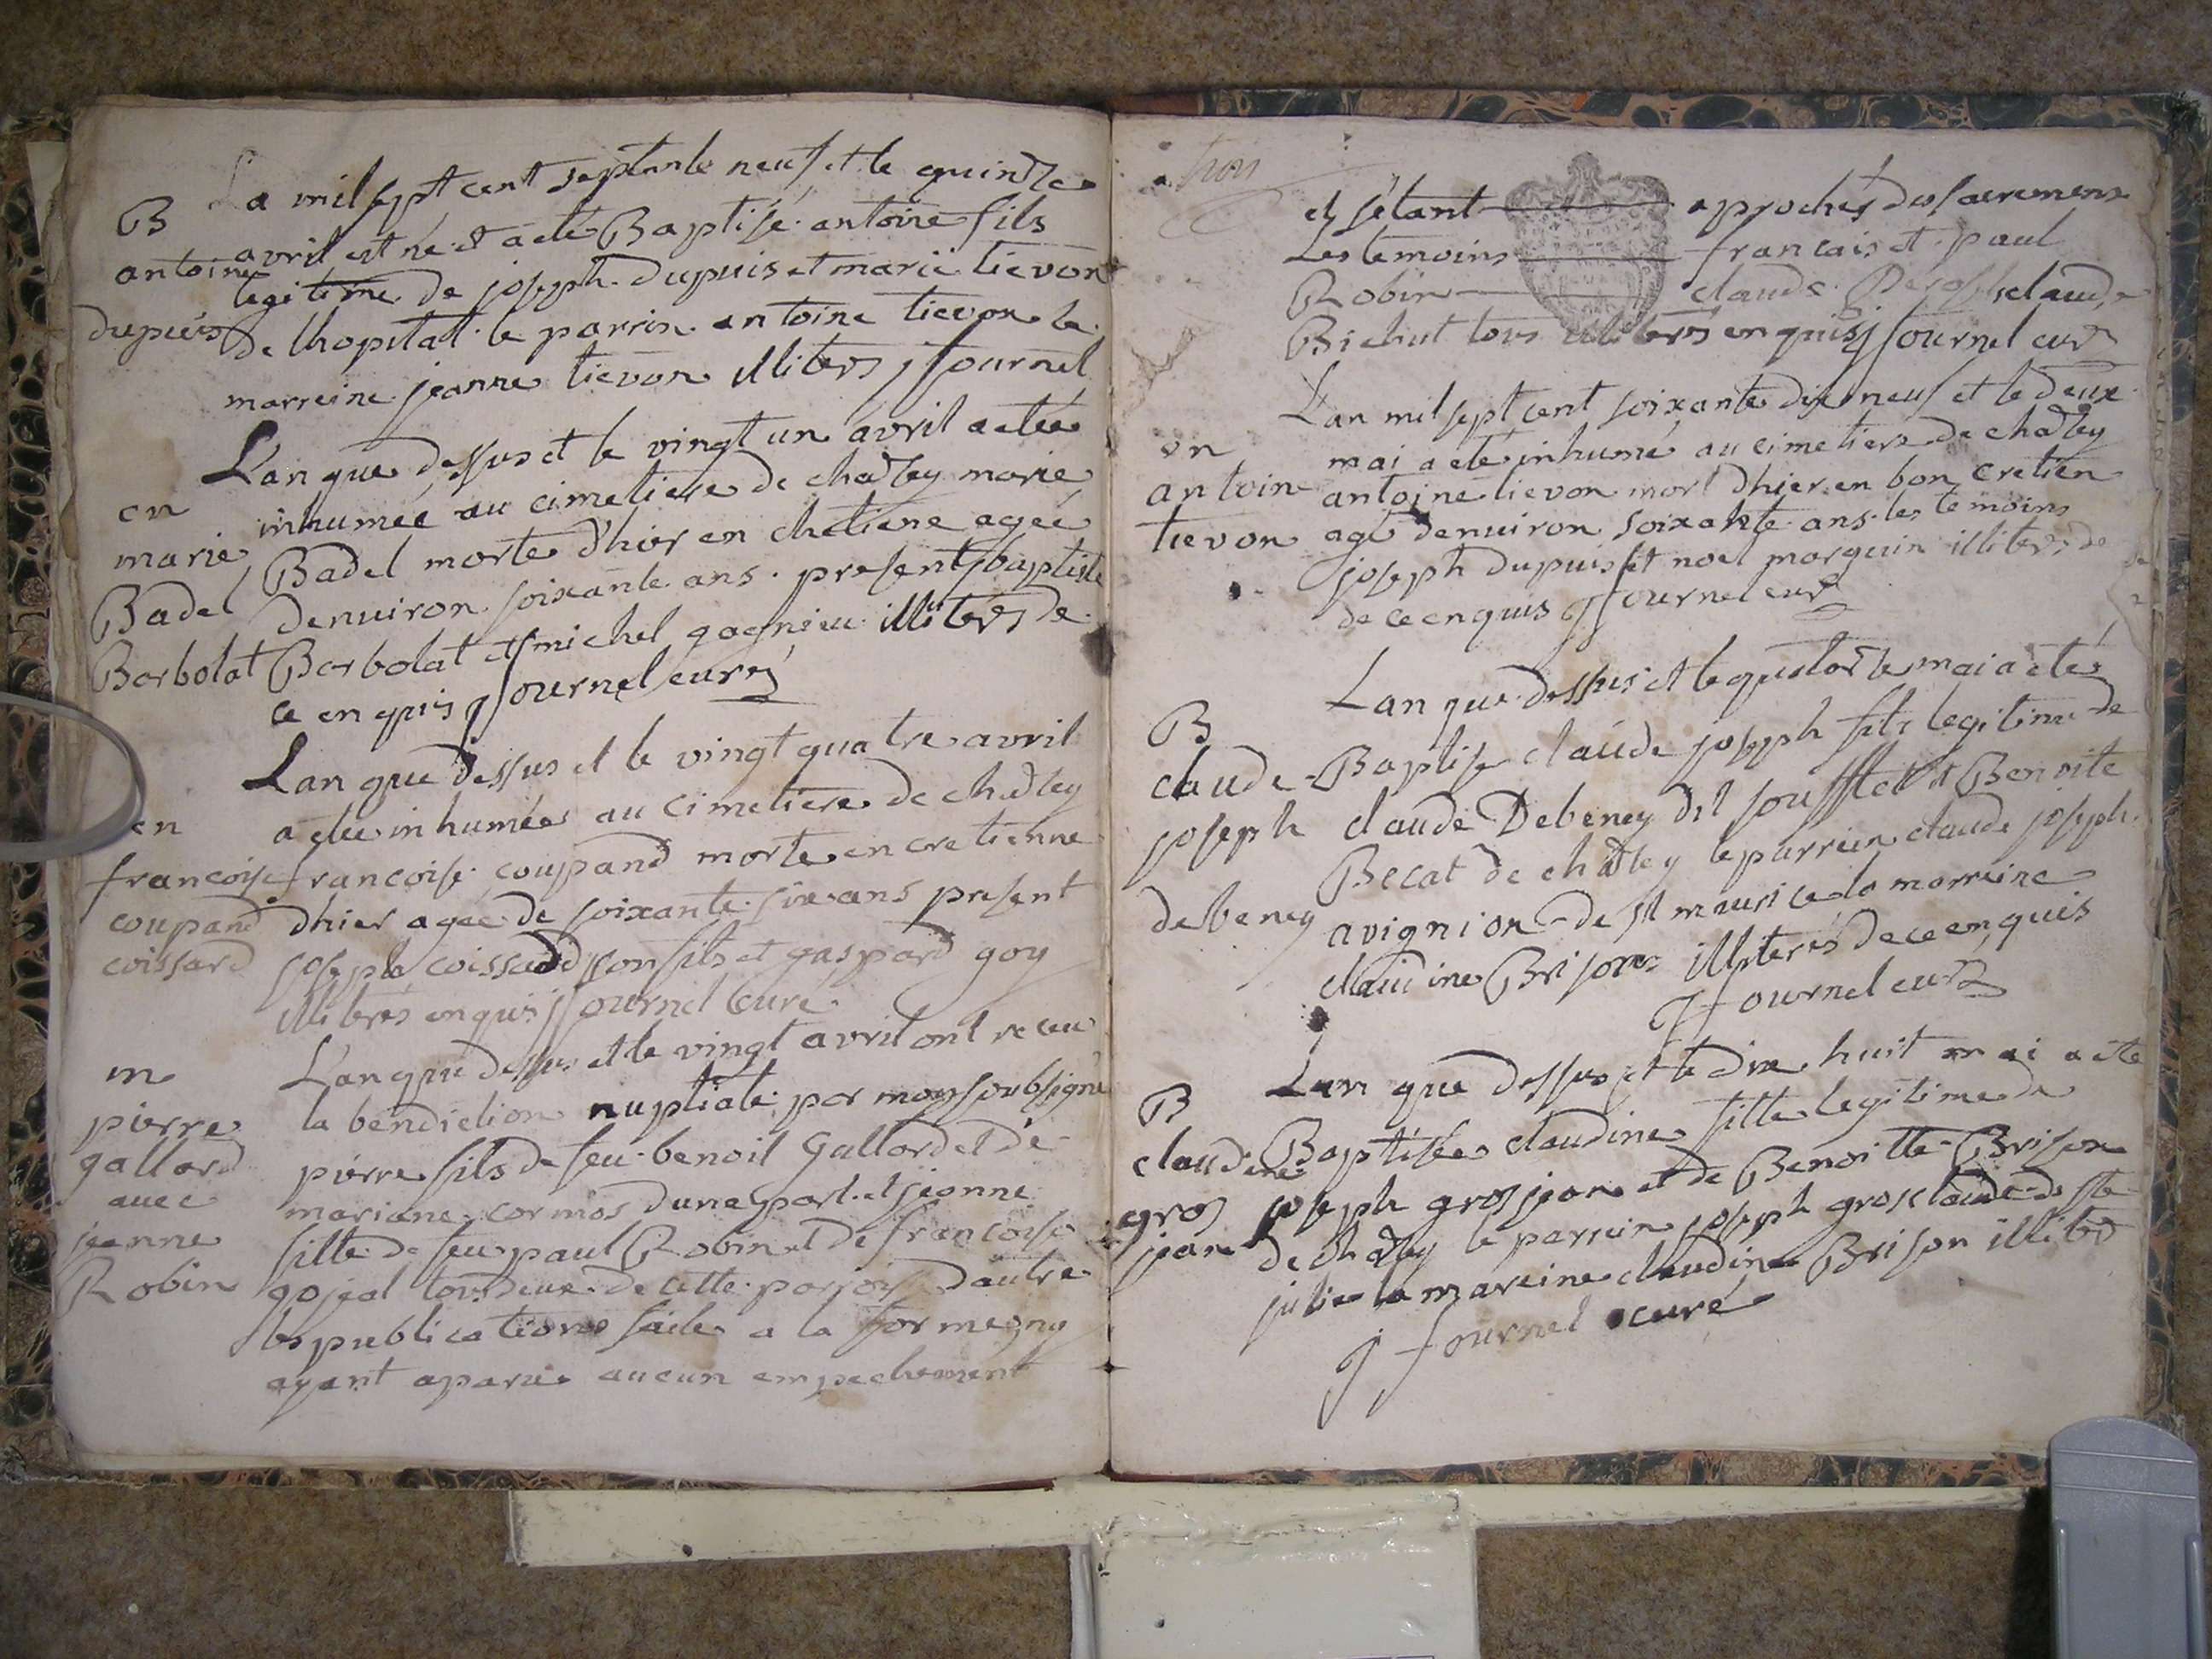 B
antoine
dupuis
La mil sept cent septante neuf et le quinze
avril est né et a été Baptisé antoine fils
legitime de joseph dupuis et marie tievon
de lhopital le parrin antoine tievon la
marreine jeanne tievon illiters j fournel
en
marie
Badel
Borbolat
Lan que dessus et le vingt un avril a eteé
inhumée au cimetiere de chazey marie
Badel morte d'hier en chetiene ageé
denuiron soixante ans present baptiste
Borbolat et michel gagnieu illiterés de
ce enquis j fournel curé
en
francoise
coupand
coissard
Lan que dessus et le vingt quatre avril
a eteé inhumée au cimetiere de chazey
francoise coupand morte en cretienne
dhier agée de soixante six ans present
joseph coissard son fils et gaspard goy
illiterés enquis j fournel curé
m
pierre
gallard
avec
jeanne
Robin
Lan que dessus et le vingt avril ont receu
la bendiction nuptiale par moy soubsigné
pierre fils de feu benoit Gallard et de
mariane cormos dune part et jeanne
fille de feu paul Robin et de francoise
gojeal tous deux de cette parroisse d'autre
les publications faites a la forme ny
ayant aparu aucun empechement
trois
et s'etant aprochés des sacremens
Les temoins francais et paul
Robin claude claude
Bichut tous illiterés enquis j fournel curé
en
antoine
tievon
Lan mil sept cent soixante dix neuf et le deux
mai a eté inhumé au cimetiere de chazey
antoine tievon mort dhier en bon cretien
agé denuiron soixante ans les temoins
joseph dupuis et noel marguin illiterés de
de ce enquis j fournel curé
B
claude
joseph
debeney
Lan que dessus et le quatorze mai a eté
Baptise claude joseph fils legitime de
claude Debeney dit soufflet et Benoite
Becat de chazey le parrein claude joseph
avignion de st maurice la marreine
claudine Brison illiterés de ce enquis
j fournel curé
B
claudine
gros
jean
Lan que dessus et le dix huit mai a eté
Baptisée claudine fille legitime de
joseph grosjean et de Benoitte Brison
de chazey le parrein joseph grosclaude de ste
julie la mareine claudine Brison illiteré
j fournel curé